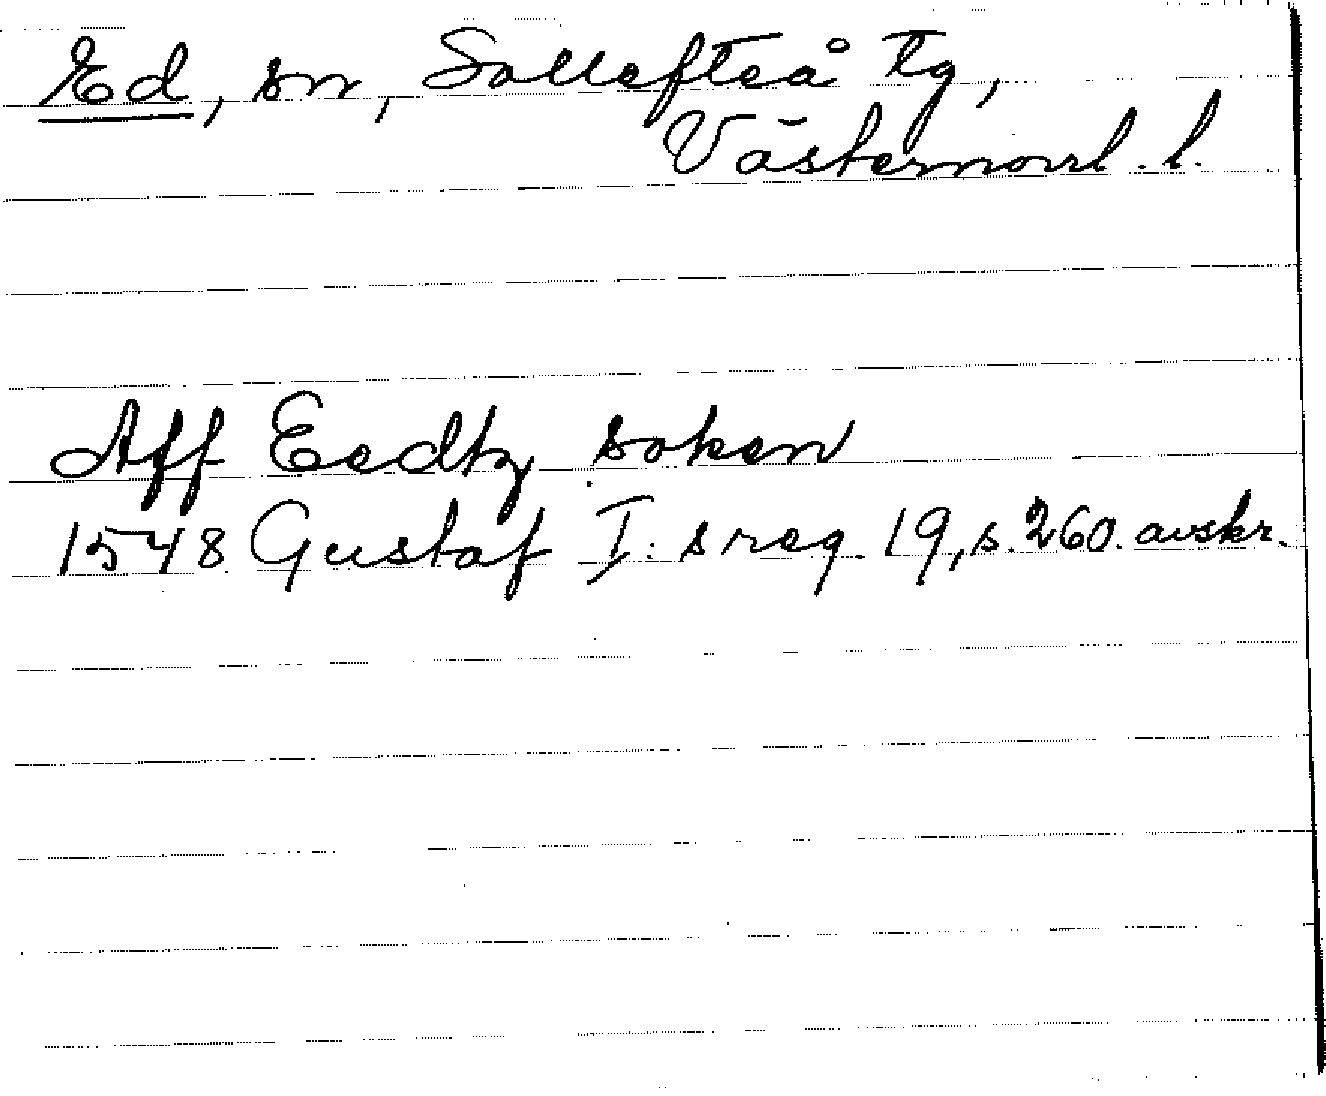 Ed, sn, Sollefteå tg,
Västernorrl. l.
Aff Eedtz soken
1548 Gustaf I: s reg. 19, s. 260. avskr.